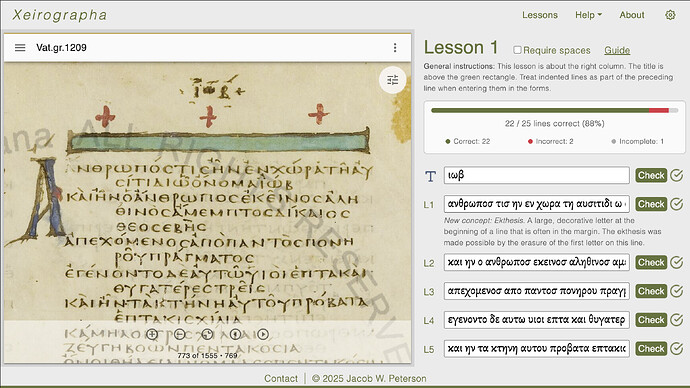 Xeirographa
Lessons
Help
About
Vat.gr.1209
ιωβ
ΑΝΘΡΩΠΟΣΤΙΣΗΝΕΝΧΩΡΑΤΗΑΥ
ΣΙΤΙΔΙΩΟΝΟΜΑΙΩΒ
ΚΑΙΗΝΟΑΝΘΡΩΠΟΣΕΚΕΙΝΟΣΑΛΗ
ΘΙΝΟΣΑΜΕΜΠΤΟΣΔΙΚΑΙΟΣ
ΘΕΟΣΕΒΗΣ
ΑΠΕΧΟΜΕΝΟΣΑΠΟΠΑΝΤΟΣΠΟΝΗ
ΡΟΥΠΡΑΓΜΑΤΟΣ
ΕΓΕΝΟΝΤΟΔΕΑΥΤΩΥΙΟΙΕΠΤΑΚΑΙ
ΘΥΓΑΤΕΡΕΣΤΡΕΙΣ
ΚΑΙΗΝΤΑΚΤΗΝΗΑΥΤΟΥΠΡΟΒΑΤΑ
ΕΠΤΑΚΙΣΧΙΛΙΑ
ΚΑΜΗΛΟΙΤΡΙΣΧΙΛΙΑΙ
ΖΕΥΓΗΒΟΩΝΠΕΝΤΑΚΟΣΙΑ
773 of 1555 • 769
Lesson 1
Require spaces
Guide
General instructions: This lesson is about the right column. The title is
above the green rectangle. Treat indented lines as part of the preceding
line when entering them in the forms.
22 / 25 lines correct (88%)
Correct: 22
Incorrect: 2
Incomplete: 1
T ιωβ Check
L1 ανθρωπος τισ ην εν χωρα τη αυσιτιδι ω Check
New concept: Ekthesis. A large, decorative letter at the
beginning of a line that is often in the margin. The ekthesis was
made possible by the erasure of the first letter on this line.
L2 και ην ο ανθρωπος εκεινος αληθινος αμ Check
L3 απεχομενος απο παντος πονηρου πραγ Check
L4 εγενοντο δε αυτω υιοι επτα και θυγατερ Check
L5 και ην τα κτηνη αυτου προβατα επτακι Check
Contact
© 2025 Jacob W. Peterson